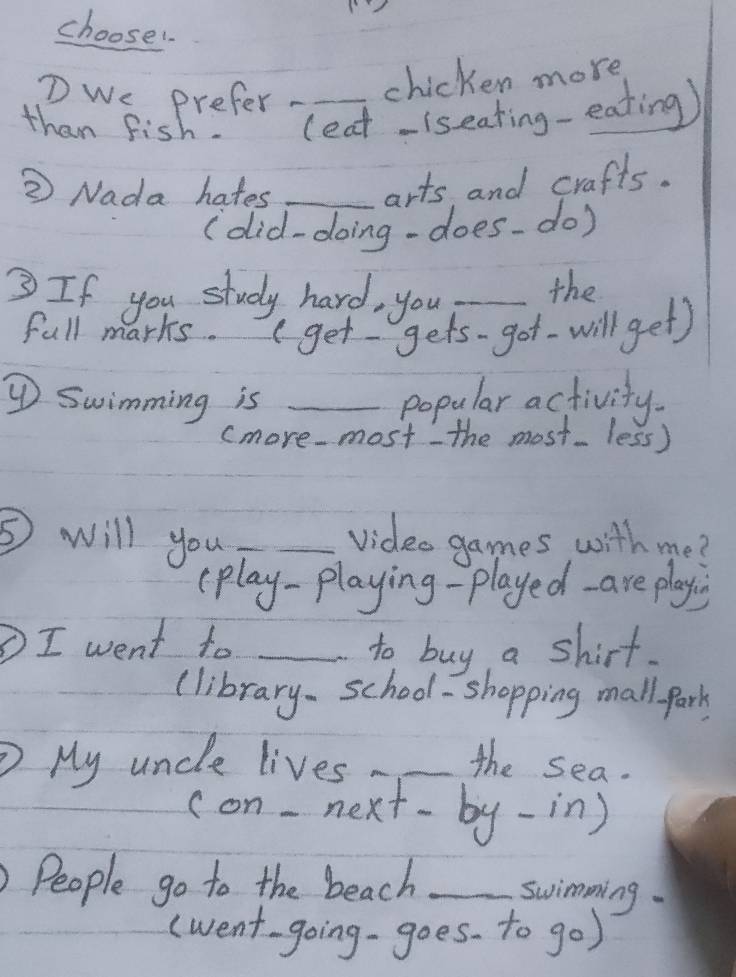 choose:-
① We prefer ____ chicken more
than fish. (eat - is eating - eating)
② Nada hates ____ arts and crafts.
(did - doing - does - do)
③ If you study hard, you ____ the
full marks. (get - gets - got - will get)
④ Swimming is ____ popular activity.
(more - most - the most - less)
⑤ Will you ____ video games with me?
(play - playing - played - are playing
I went to ____ to buy a shirt.
(library - school - shopping mall - Park
My uncle lives ____ the sea.
(on - next - by - in)
People go to the beach ____ swimming.
(went - going - goes - to go)